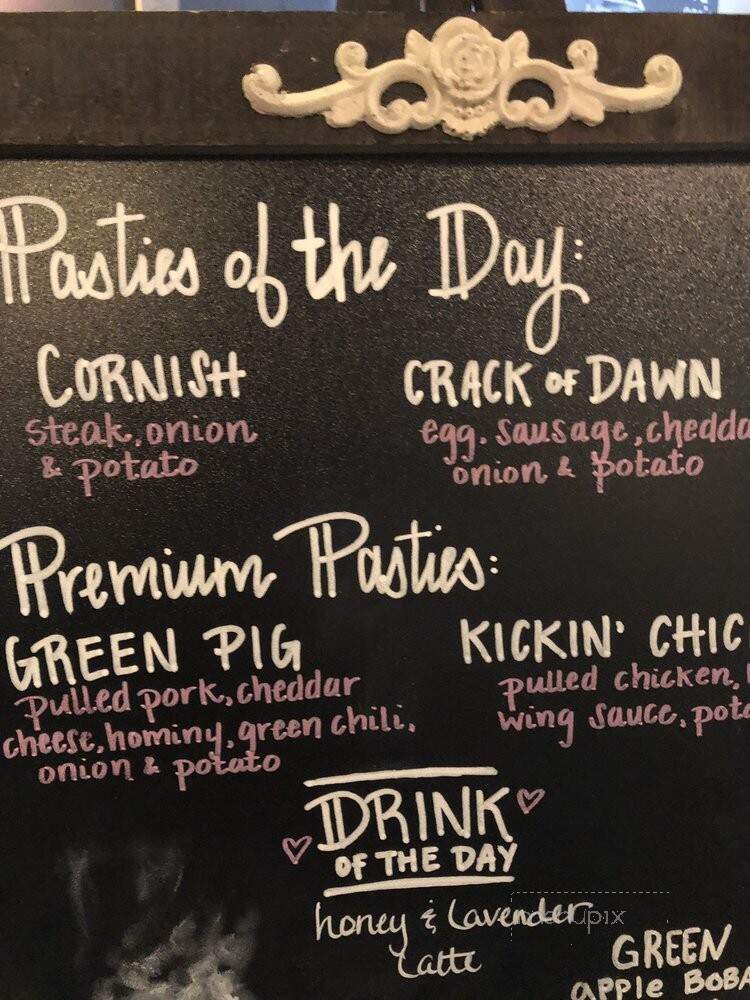 Pasties of the Day:
CORNISH
steak, onion
& potato
CRACK OF DAWN
egg. sausage, chedda
onion & potato
Premium Pasties:
GREEN PIG
pulled pork, cheddar
cheese, hominy, green chili,
onion & potato
KICKIN' CHIC
pulled chicken,
wing sauce, pota
DRINK
OF THE DAY
honey & Lavender
Latte
GREEN
apple BOBA